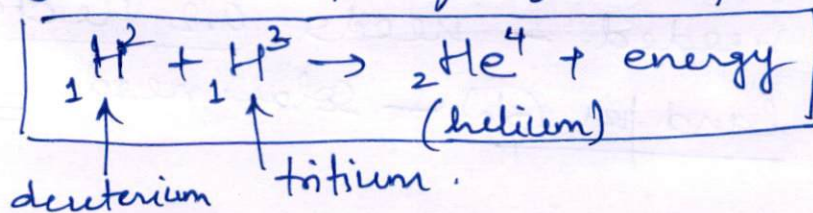 ₁H² + ₁H³ → ₂He⁴ + energy
(helium)
deuterium tritium.